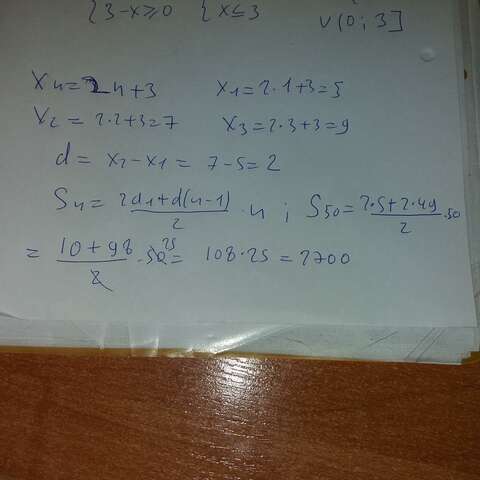 {3-x≥0 {x≤3 ∪(0;3]
xn=2n+3 x1=2·1+3=5
x2=2·2+3=7 x3=2·3+3=9
d=x2-x1=7-5=2
Sn=2a1+d(n-1)/2·n; S50=2·5+2·49/2·50
=10+98/2·50 25=108·25=2700